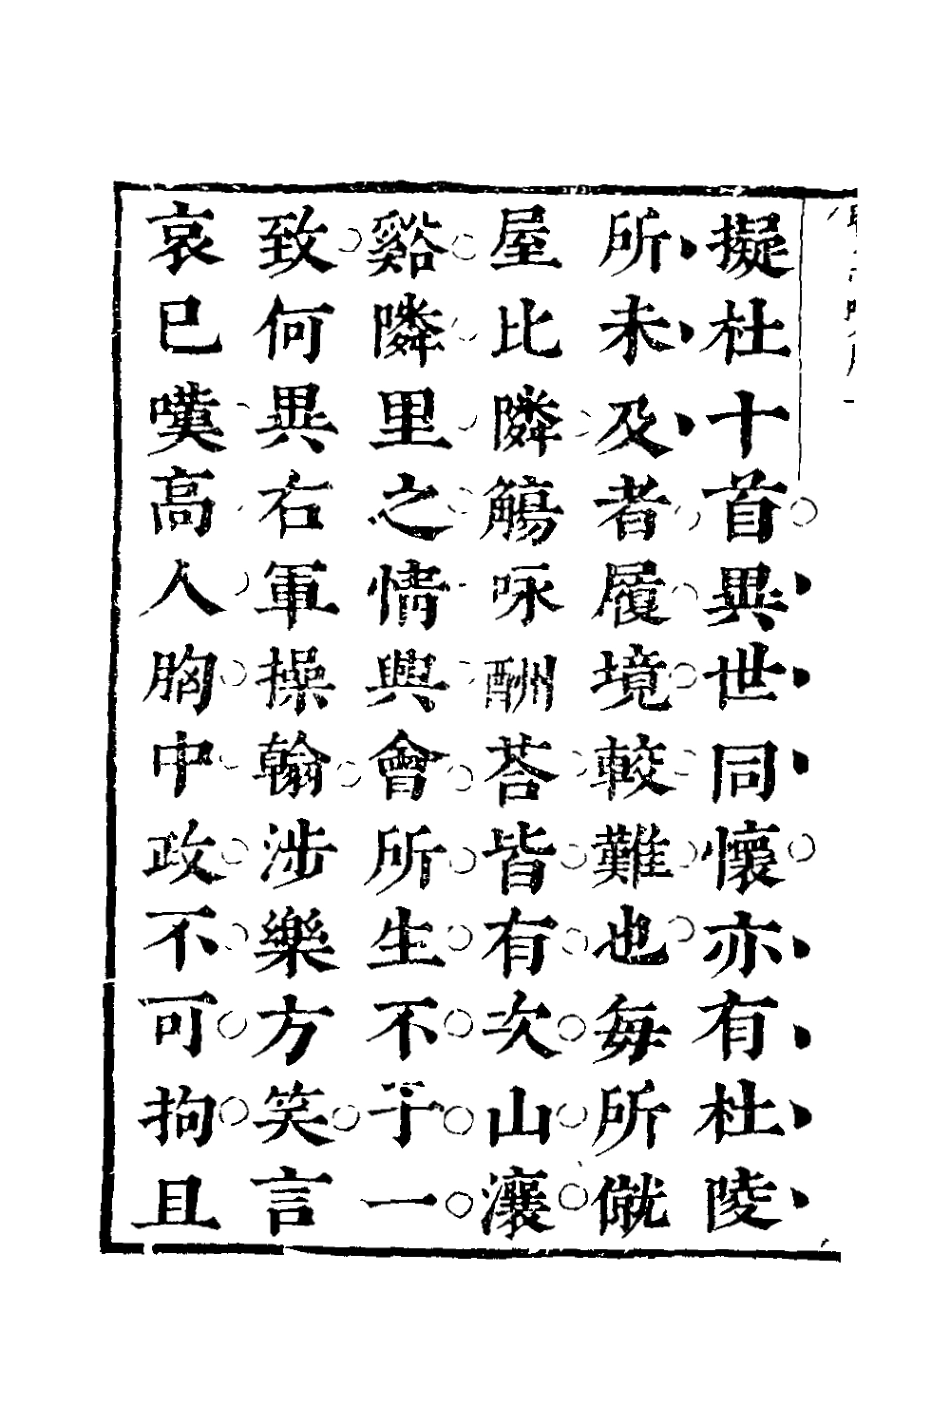 擬杜十首異世同懷亦有杜陵
所未及者履境較難也每所僦
屋比隣觴咏酬荅皆有次山瀼
谿隣里之情與會所生不于一
致何異右軍操翰涉樂方笑言
哀已嘆高人胸中政不可拘且